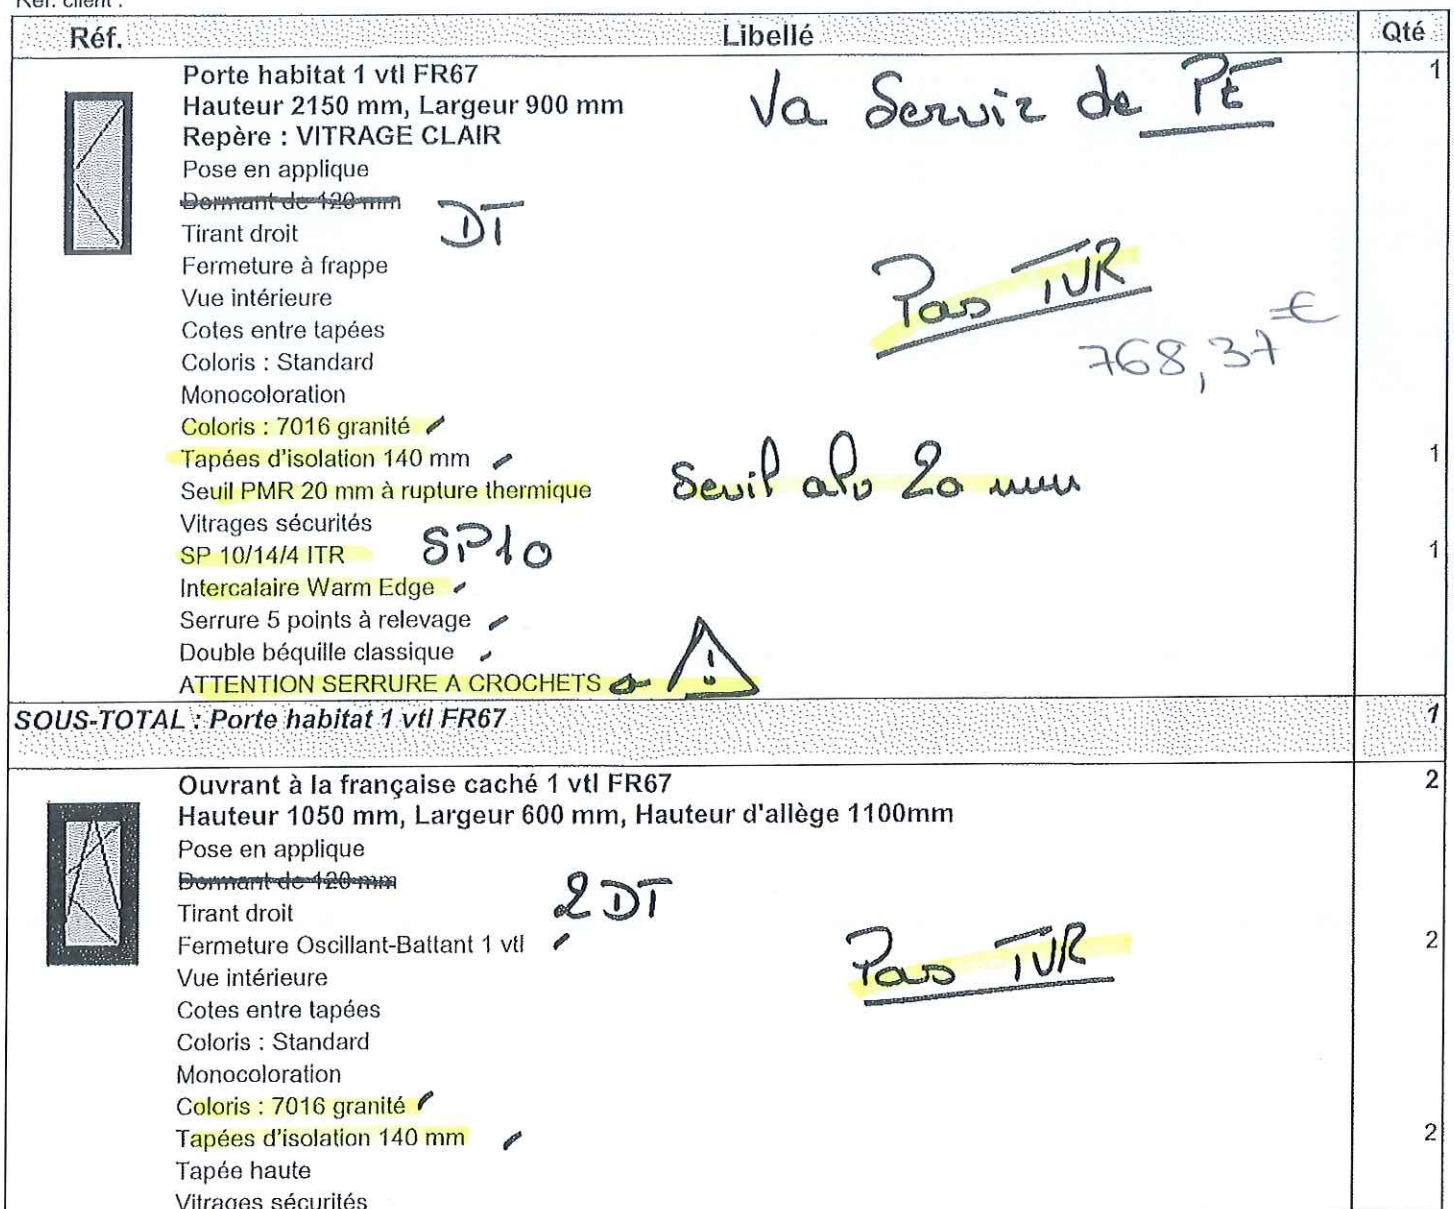 Réf. client :
Réf. Libellé Qté
Porte habitat 1 vtl FR67 1
Hauteur 2150 mm, Largeur 900 mm
Va Servir de PE
Repère : VITRAGE CLAIR
Pose en applique
Dormant de 120 mm
DT
Tirant droit
Fermeture à frappe
Pas TVR
Vue intérieure
Cotes entre tapées
768,37 €
Coloris : Standard
Monocoloration
Coloris : 7016 granité
Tapées d'isolation 140 mm 1
Seuil PMR 20 mm à rupture thermique Seuil alu 20 mm
Vitrages sécurités
SP 10/14/4 ITR SP10 1
Intercalaire Warm Edge
Serrure 5 points à relevage
Double béquille classique
ATTENTION SERRURE A CROCHETS !
SOUS-TOTAL : Porte habitat 1 vtl FR67 1
Ouvrant à la française caché 1 vtl FR67 2
Hauteur 1050 mm, Largeur 600 mm, Hauteur d'allège 1100mm
Pose en applique
Dormant de 120 mm
2 DT
Tirant droit
Fermeture Oscillant-Battant 1 vtl 2
Pas TVR
Vue intérieure
Cotes entre tapées
Coloris : Standard
Monocoloration
Coloris : 7016 granité
Tapées d'isolation 140 mm 2
Tapée haute
Vitrages sécurités